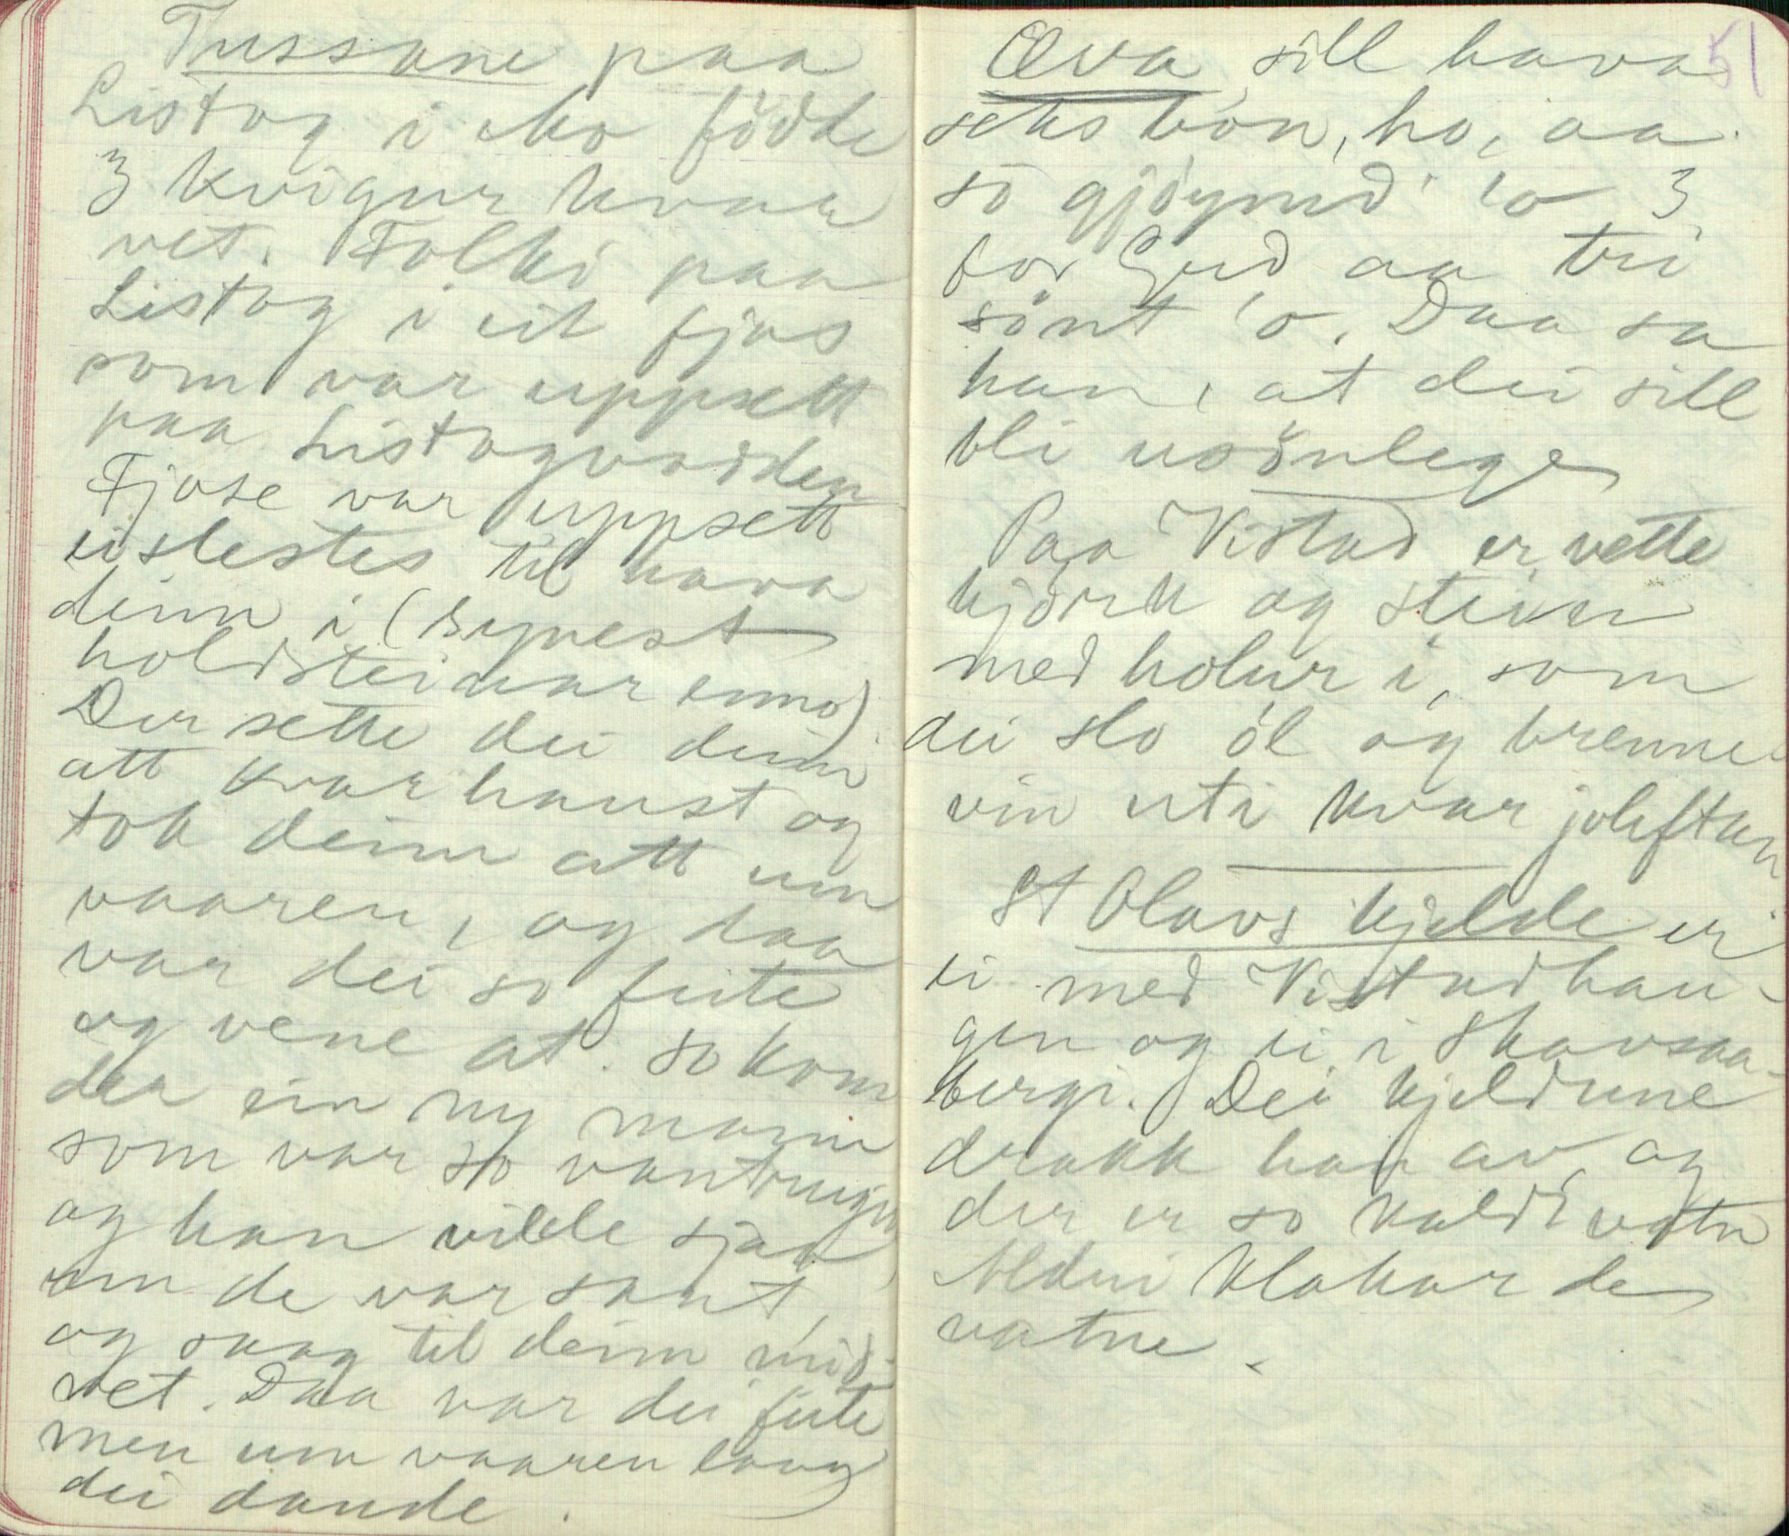 Tussane paa
Listog i Mo födde
3 kvigur kvar
vet. Folki paa
Listog i eit fjos
som var uppsett
paa Listogvodden
Fjose var uppsett
eislestes til hava
deim i (synest
holdsteinar enno)
Der sette dei deim
att kvar haust og
tok deim att um
vaaren, og daa
var dei so feite
og vene at. So kom
der ein ny mann
som var so vantruigen
og han vilde sjaa
um de var sant,
og saag til deim mid-
vet. Daa var dei feite
men um vaaren laag
dei daude.
51
Æva sill hava
seks bon, ho, aa
so gjöymd 'o 3
for Gud aa tri
sönt 'o. Daa sa
han, at dei sill
bli usönlege
Paa Vistad er vette
kjörk og stein
med holur i, som
dei slo öl og brenne-
vin uti kvar joleftan
St Olavs kjelde er
ei med Vistadhau-
gen og ei i Skavsaa-
bergi. Dei kjeldune
drakk han av, og
der er so kaldt vatn
Aldri klakar de
vatne.